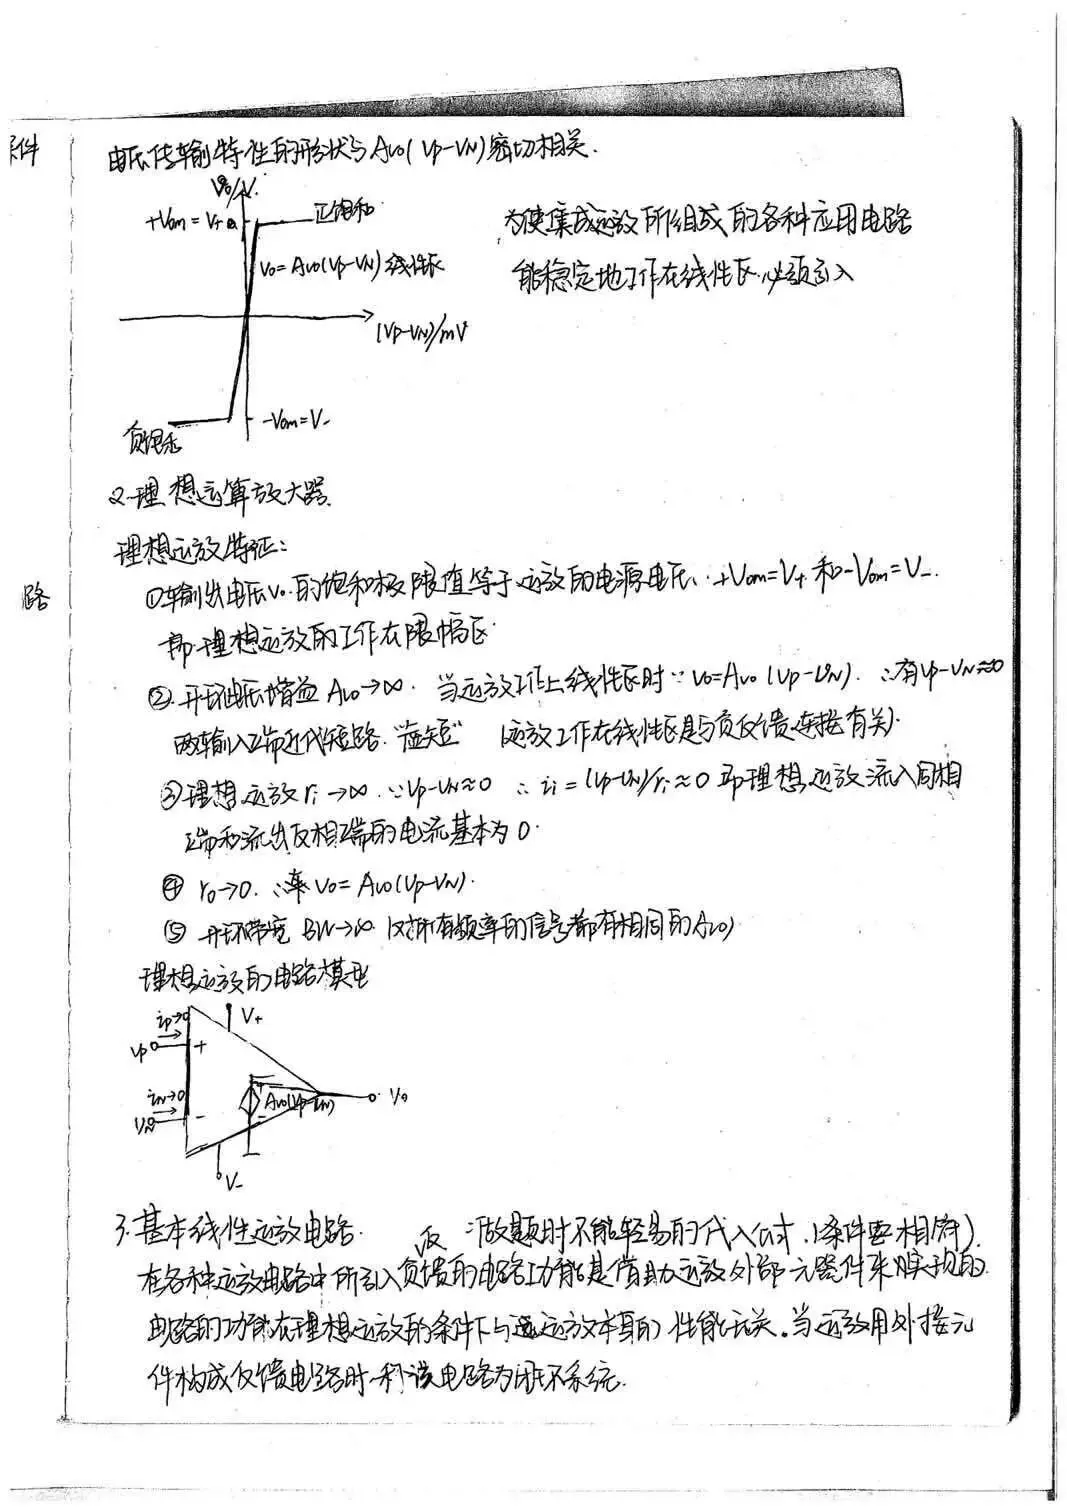 件
电压传输特性的形状与Avo(Vp-VN)密切相关.
Vo/V
+Vom=V+
正饱和
vo=Avo(Vp-VN) 线性区
(Vp-VN)/mV
-Vom=V-
负饱和
为使集成运放所组成的各种应用电路
能稳定地工作在线性区.必须引入
2.理想运算放大器.
理想运放特征:
路
①输出电压vo.的饱和极限值等于运放的电源电压、+Vom=V+和-Vom=V-.
即理想运放的工作在限幅区.
②.开环电压增益Avo→∞. 当运放工作上线性区时∵vo=Avo(Vp-VN). ∴有Vp-VN≈0
两输入端近似短路."虚短" (运放工作在线性区是与负反馈连接有关)
③理想运放ri→∞.∵Vp-VN≈0 ∴ii=(Vp-VN)/ri≈0 即理想运放流入同相
端和流出反相端的电流基本为0.
④ ro→0. ∴ vo=Avo(Vp-VN).
⑤ 开环带宽 BW→∞ (对所有频率的信号都有相同的Avo)
理想运放的电路模型
ip→0
V+
Vp
+
iN→0
Avo(Vp-VN)
Vo
VN
-
V-
3.基本线性运放电路. 反 :做题时不能轻易的代入公式.(条件要相符)
在各种运放电路中所引入负馈的电路功能是借助运放外部元器件来实现的.
电路的功能在理想运放的条件下与运放本身的性能无关。当运放用外接元
件构成反馈电路时.称该电路为闭环系统.